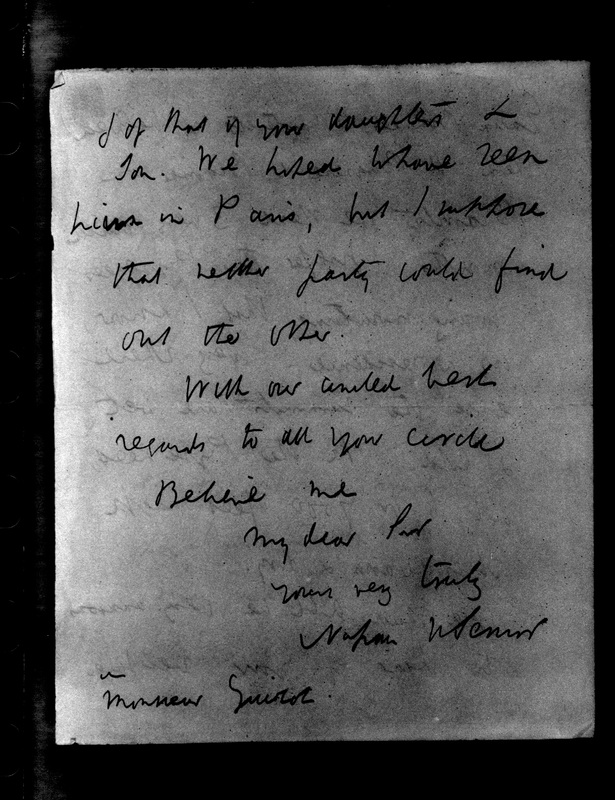 & of that of your daughters &
Son. We hoped to have seen
him in Paris, but I suppose
that neither party could find
out the other.
With our united best
regards to all your circle
Believe me
My dear Sir
yours very truly
Nassau W Senior
Monsieur Guizot.